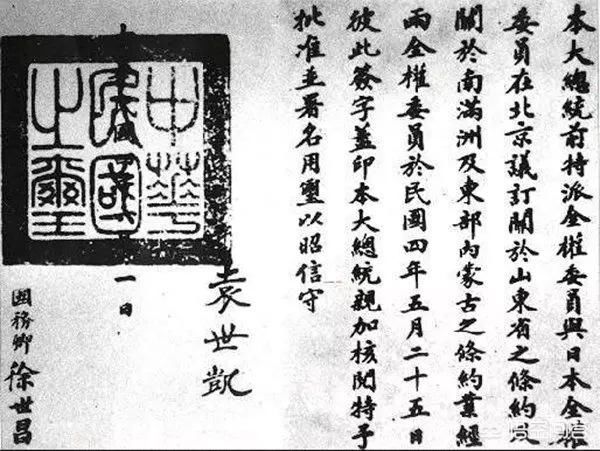 本大總統前特派全權委員與日本全權
委員在北京議訂關於山東省之條約及
關於南滿洲及東部內蒙古之條約業經
兩全權委員於民國四年五月二十五日
彼此簽字蓋印本大總統親加核閱特予
批准並署名用璽以昭信守
袁世凱
中華
民國
之璽
一日
國務卿 徐世昌